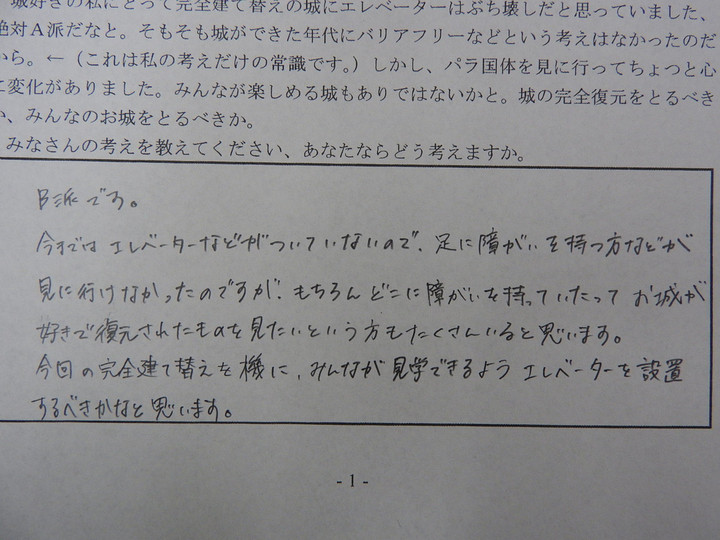 城好きの私にとって完全建て替えの城にエレベーターはぶち壊しだと思っていました、
絶対A派だなと。そもそも城ができた年代にバリアフリーなどという考えはなかったのだ
から。←（これは私の考えだけの常識です。）しかし、パラ国体を見に行ってちょっと心
に変化がありました。みんなが楽しめる城もありではないかと。城の完全復元をとるべき
か、みんなのお城をとるべきか。
みなさんの考えを教えてください、あなたならどう考えますか。
B派です。
今まではエレベーターなどがついていないので、足に障がいを持つ方などが
見に行けなかったのですが、もちろんどこに障がいを持っていたってお城が
好きで復元されたものを見たいという方もたくさんいると思います。
今回の完全建て替えを機に、みんなが見学できるようエレベーターを設置
するべきかなと思います。
- 1 -